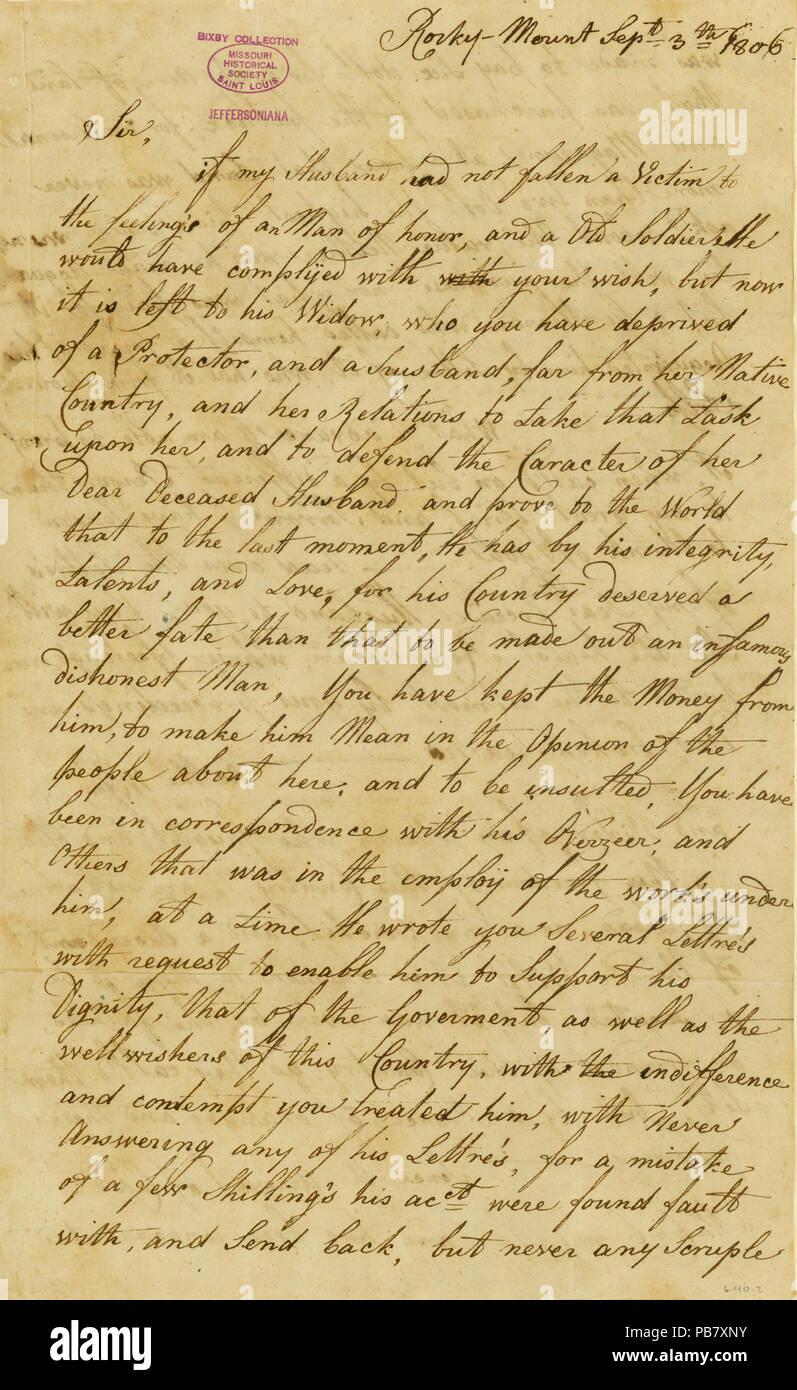 Rocky-Mount Sept. 3th 1806
BIXBY COLLECTION
MISSOURI
HISTORICAL
SOCIETY
SAINT LOUIS
JEFFERSONIANA
Sir,
if my Husband had not fallen a Victim to
the feeling's of an Man of honor, and a Old Soldier, He
would have complijed with with your wish, but now
it is left to his Widow, who you have deprived
of a Protector, and a husband, far from her Native
Country, and her Relations to take that task
upon her, and to defend the Caracter of her
Dear Deceased Husband, and prove to the World
that to the last moment, He has by his integrity,
talents, and Love, for his Country deserved a
better fate than that to be made out an infamous
dishonest Man, You have kept the Money from
him, to make him Mean in the Opinion of the
people about here, and to be insulted, You have
been in correspondence with his Overzeer, and
Others that was in the employ of the work's under
him, at a time He wrote you Several Lettre's
with request to enable him to Support his
Dignity, that of the Goverment, as well as the
well wishers of this Country, with the indifference
and contempt you treated him, with Never
Answering any of his Lettre's, for a mistake
of a few Shilling's his acct. were found fault
with, and Send back, but never any Scruple
alamy
alamy
Image ID: PB7XNY
www.alamy.com